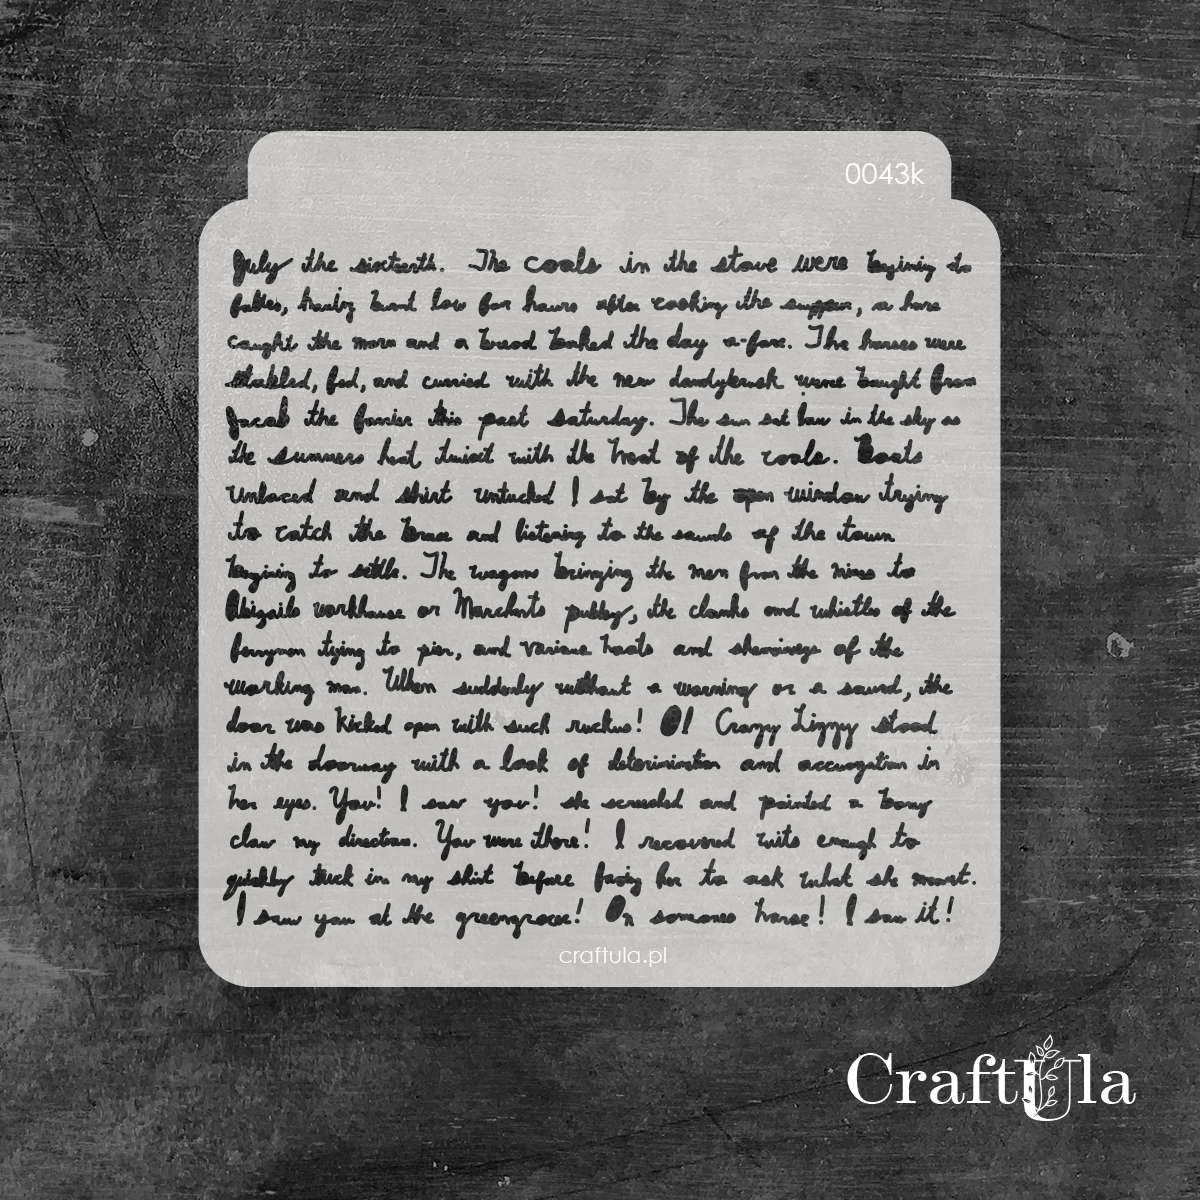 0043k
July the sixteenth. The coals in the stove were begining to
having burnt low for hours after cooking the supper, a hare
caught the morn and a bread baked the day a-fore. The horses were
stabled, fed, and curried with the new dandybrush were bought from
Jacob the farrier this past saturday. The sun sat low in the sky as
the summers heat twixt with the heat of the coals. Boots
unlaced and shirt untucked I sat by the open window trying
to catch the breeze and listening to the sounds of the town
begining to settle. The wagons bringing the men from the mines to
Abigails workhouse or Marchants pubbey, the clanks and whistles of the
ferrymen tying to pier, and various hoots and of the
working man. When suddenly without a warning or a sound, the
door was kicked open with such ruckus! Ol Crazy Lizzy stood
in the doorway with a look of determination and accusation in
her eyes. You! I saw you! she screeched and pointed a bony
claw my direction. You were there! I recovered wits enough to
quickly tuck in my shirt before facing her to ask what she meant.
I saw you at the greengrocer! On someones horse! I saw it!
craftula.pl
CraftUla